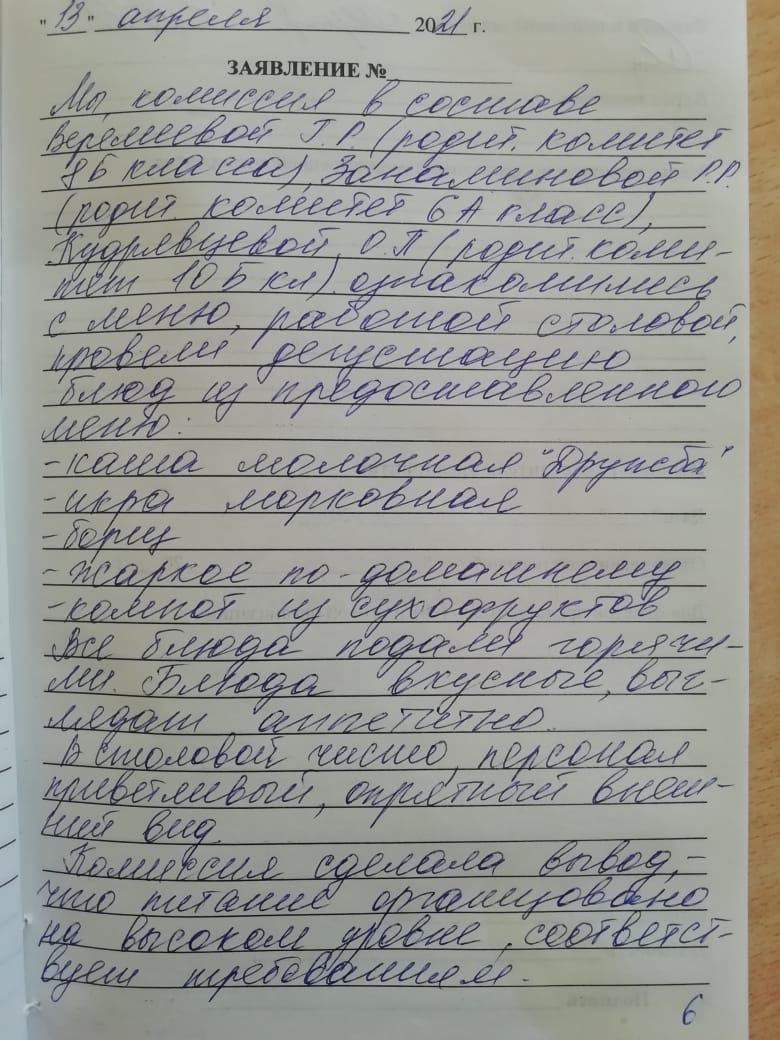 "13" апреля 2021 г.
ЗАЯВЛЕНИЕ №
Мы, комиссия в составе
Веремеевой Г.Р. (родит. комитет
8Б класса), Занаминовой Р.Р.
(родит. комитет 6А класс),
Кудрявцевой О.П (родит. коми-
тет 10Б кл) ознакомились
с меню, работой столовой,
провели дегустацию
блюд из предоставленного
меню:
- каша молочная "Дружба"
- икра морковная
- борщ
- жаркое по-домашнему
- компот из сухофруктов
Все блюда подали горячи-
ми. Блюда вкусные, выг-
лядят аппетитно.
В столовой чисто, персонал
приветливый, опрятный внеш-
ний вид.
Комиссия сделала вывод, -
что питание организовано
на высоком уровне, соответст-
вует требованиям.
6